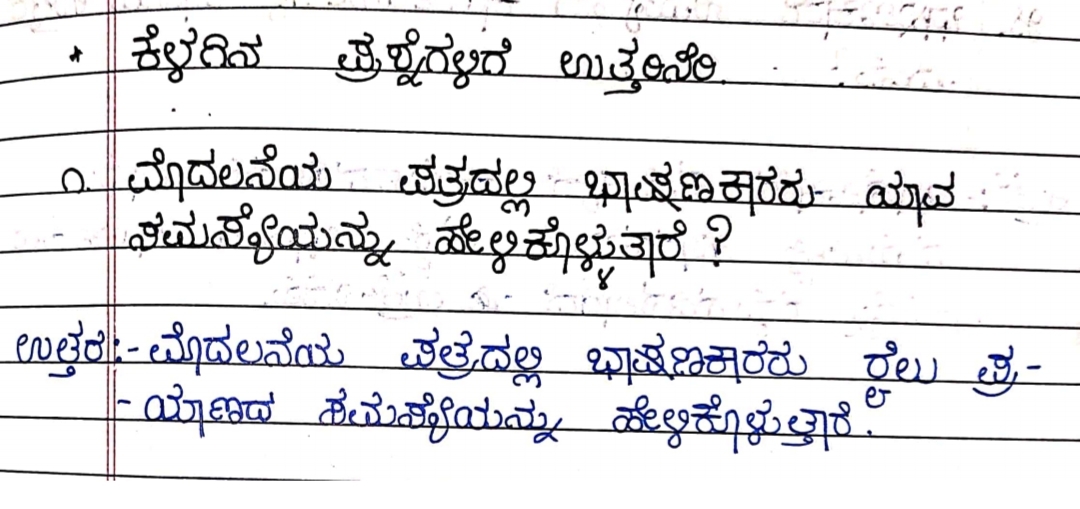 * ಕೆಳಗಿನ ಪ್ರಶ್ನೆಗಳಿಗೆ ಉತ್ತರಿಸಿರಿ.
೧. ಮೊದಲನೆಯ ಪತ್ರದಲ್ಲಿ ಭಾಷಣಕಾರರು ಯಾವ
ಸಮಸ್ಯೆಯನ್ನು ಹೇಳಿಕೊಳ್ಳುತಾರೆ ?
ಉತ್ತರ:- ಮೊದಲನೆಯ ಪತ್ರದಲ್ಲಿ ಭಾಷಣಕಾರರು ರೈಲು ಪ್ರ-
- ಯಾಣದ ಸಮಸ್ಯೆಯನ್ನು ಹೇಳಿಕೊಳುತ್ತಾರೆ.